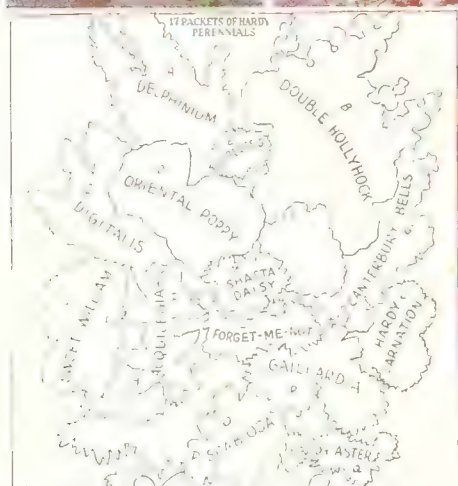 17 PACKETS OF HARDY
PERENNIALS
A
DELPHINIUM
B
DOUBLE HOLLYHOCK
ORIENTAL POPPY
DIGITALIS
CANTERBURY BELLS
SHASTA
DAISY
FORGET-ME-NOT
HARDY
CARNATION
GAILLARDIA
ASTER